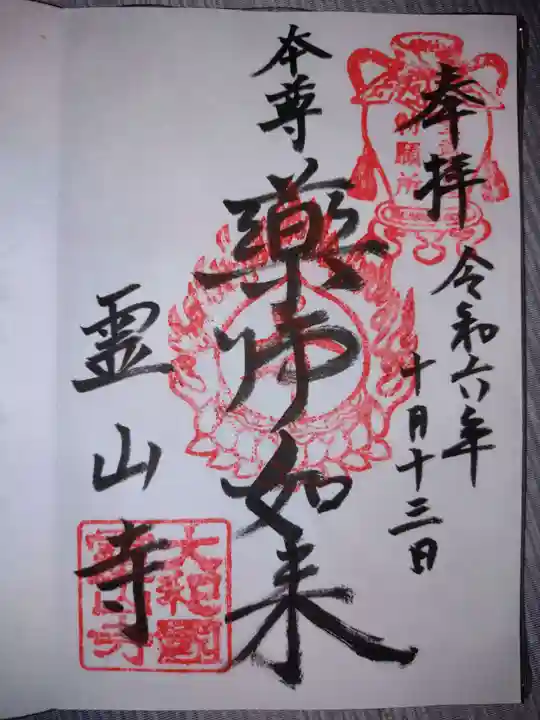 奉拝
令和六年
十月十三日
本尊
藥师如来
霊山寺
大和國
霊山寺